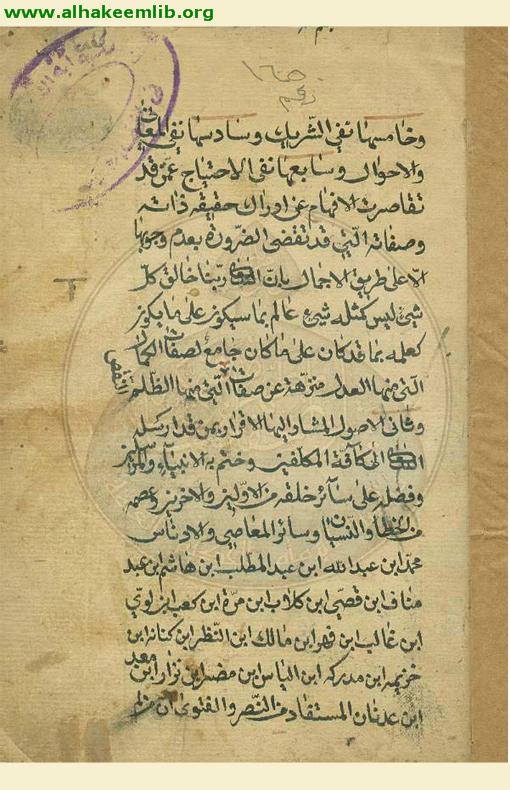 www.alhakeemlib.org
وخامسها نفي الشريك وسادسها نفي المعاني
والاحوال وسابعها نفي الاحتياج عمن قد
تقاصرت الافهام عن ادراك حقيقه ذاته
وصفاته التي قد تقضى الضرورة بعدم وجوبها
الا على طريق الاجمال بان الله ربنا خالق كل
شئ ليس كمثله شئ عالم بما سيكون على ما يكون
كعلمه بما قد كان على ما كان جامع لصفات الكمال
التي منها العدل منزهة عن صفات النقص التي منها الظلم
وثانى الاصول المشار اليها الاقرار بمن قد ارسله
الله الى كافة المكلفين وختم به الانبياء
وفضله على سائر خلقه من الاولين والاخرين وعصمه
من الخطأ والنسيان وسائر المعاصي والادناس
محمد ابن عبد الله ابن عبد المطلب ابن هاشم ابن عبد
مناف ابن قصي ابن كلاب ابن مرة ابن كعب ابن لوي
ابن غالب ابن فهر ابن مالك ابن النظر ابن كنانه ابن
خزيمه ابن مدركه ابن الياس ابن مضر ابن نزار ابن معد
ابن عدنان المستفاد من النصر والفتوى ان